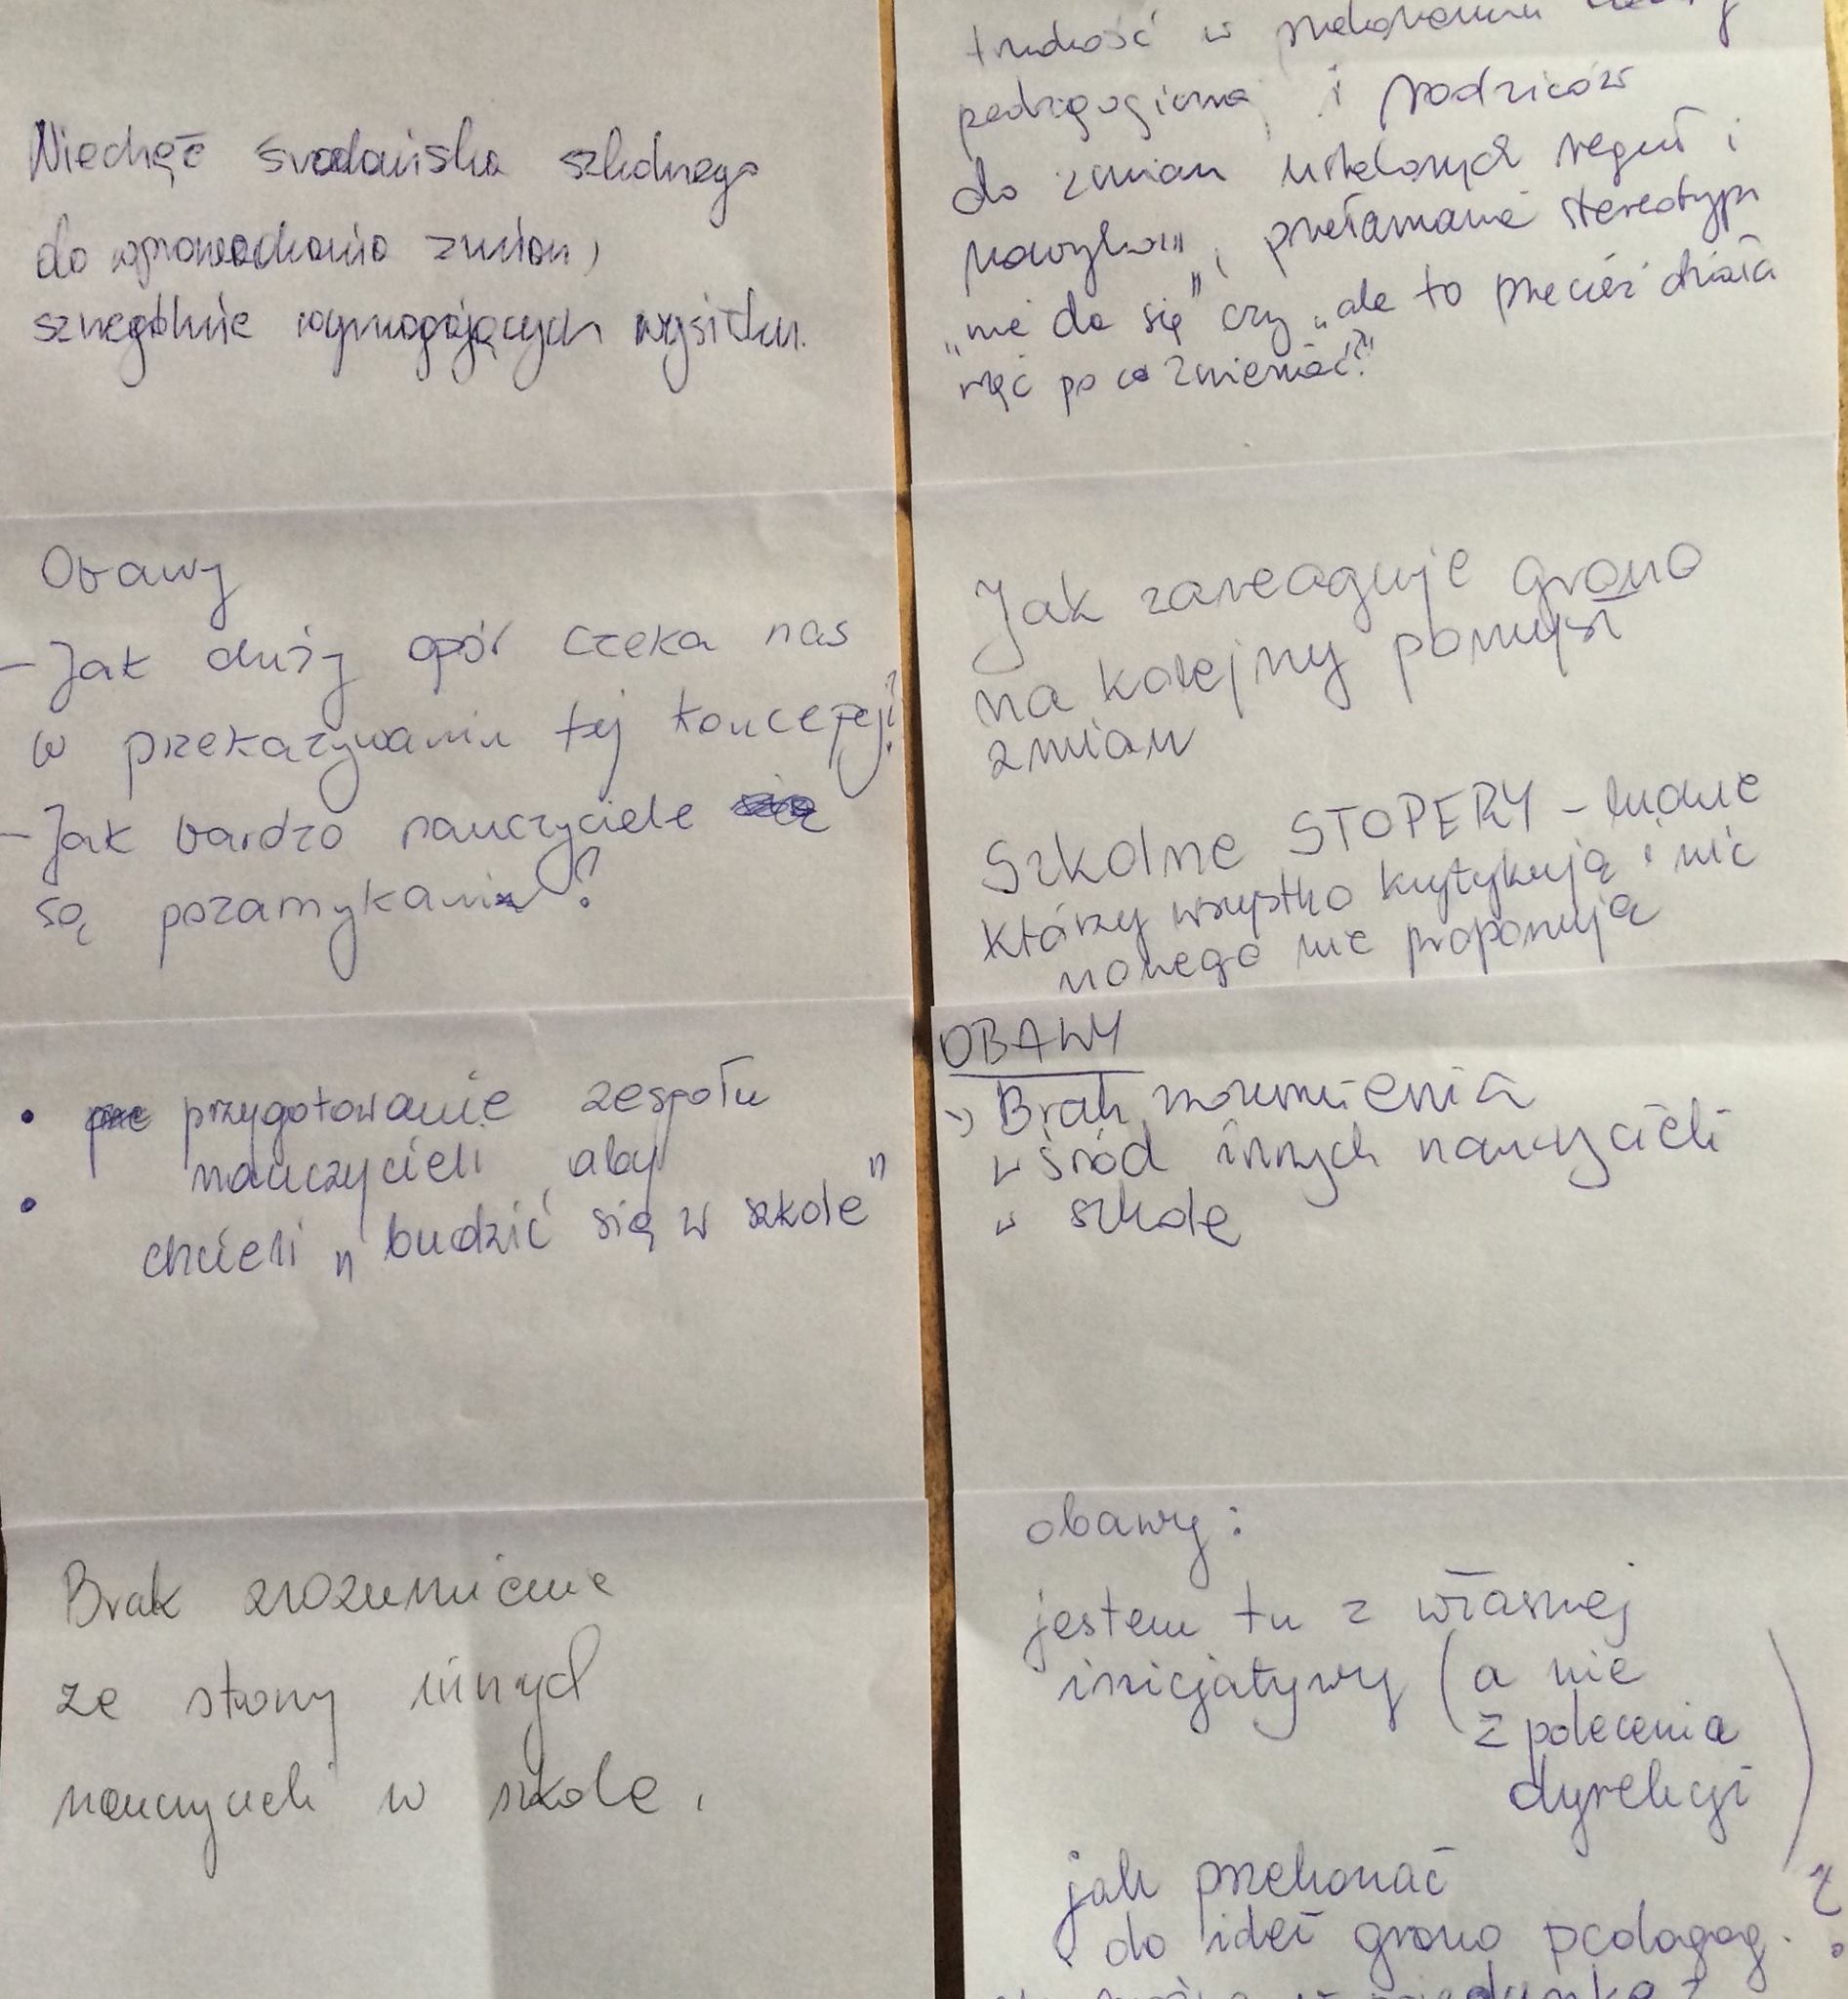 Niechęć środowiska szkolnego
do wprowadzania zmian,
szczególnie wymagających wysiłku.
Obawy
- Jak duży opór czeka nas
w przekazywaniu tej koncepcji?
- Jak bardzo nauczyciele
są pozamykani?
• przygotowanie zespołu
nauczycieli, aby
• chcieli „budzić się w szkole"
Brak zrozumienie
ze strony innych
nauczycieli w szkole.
trudność w przekonaniu
pedagogiczną i rodziców
do zmian ustalonych reguł i
nawyków, przełamanie stereotypu
„nie da się" czy „ale to przecież działa
więc po co zmieniać?"
Jak zareaguje grono
na kolejny pomysł
zmian
Szkolne STOPERY - ludzie
którzy wszystko krytykują i nic
nowego nie proponują
OBAWY
Brak rozumienia
wśród innych nauczycieli
w szkole
obawy:
jestem tu z własnej
inicjatywy (a nie
z polecenia
dyrekcji)
jak przekonać
do idei grono pedagog. ?